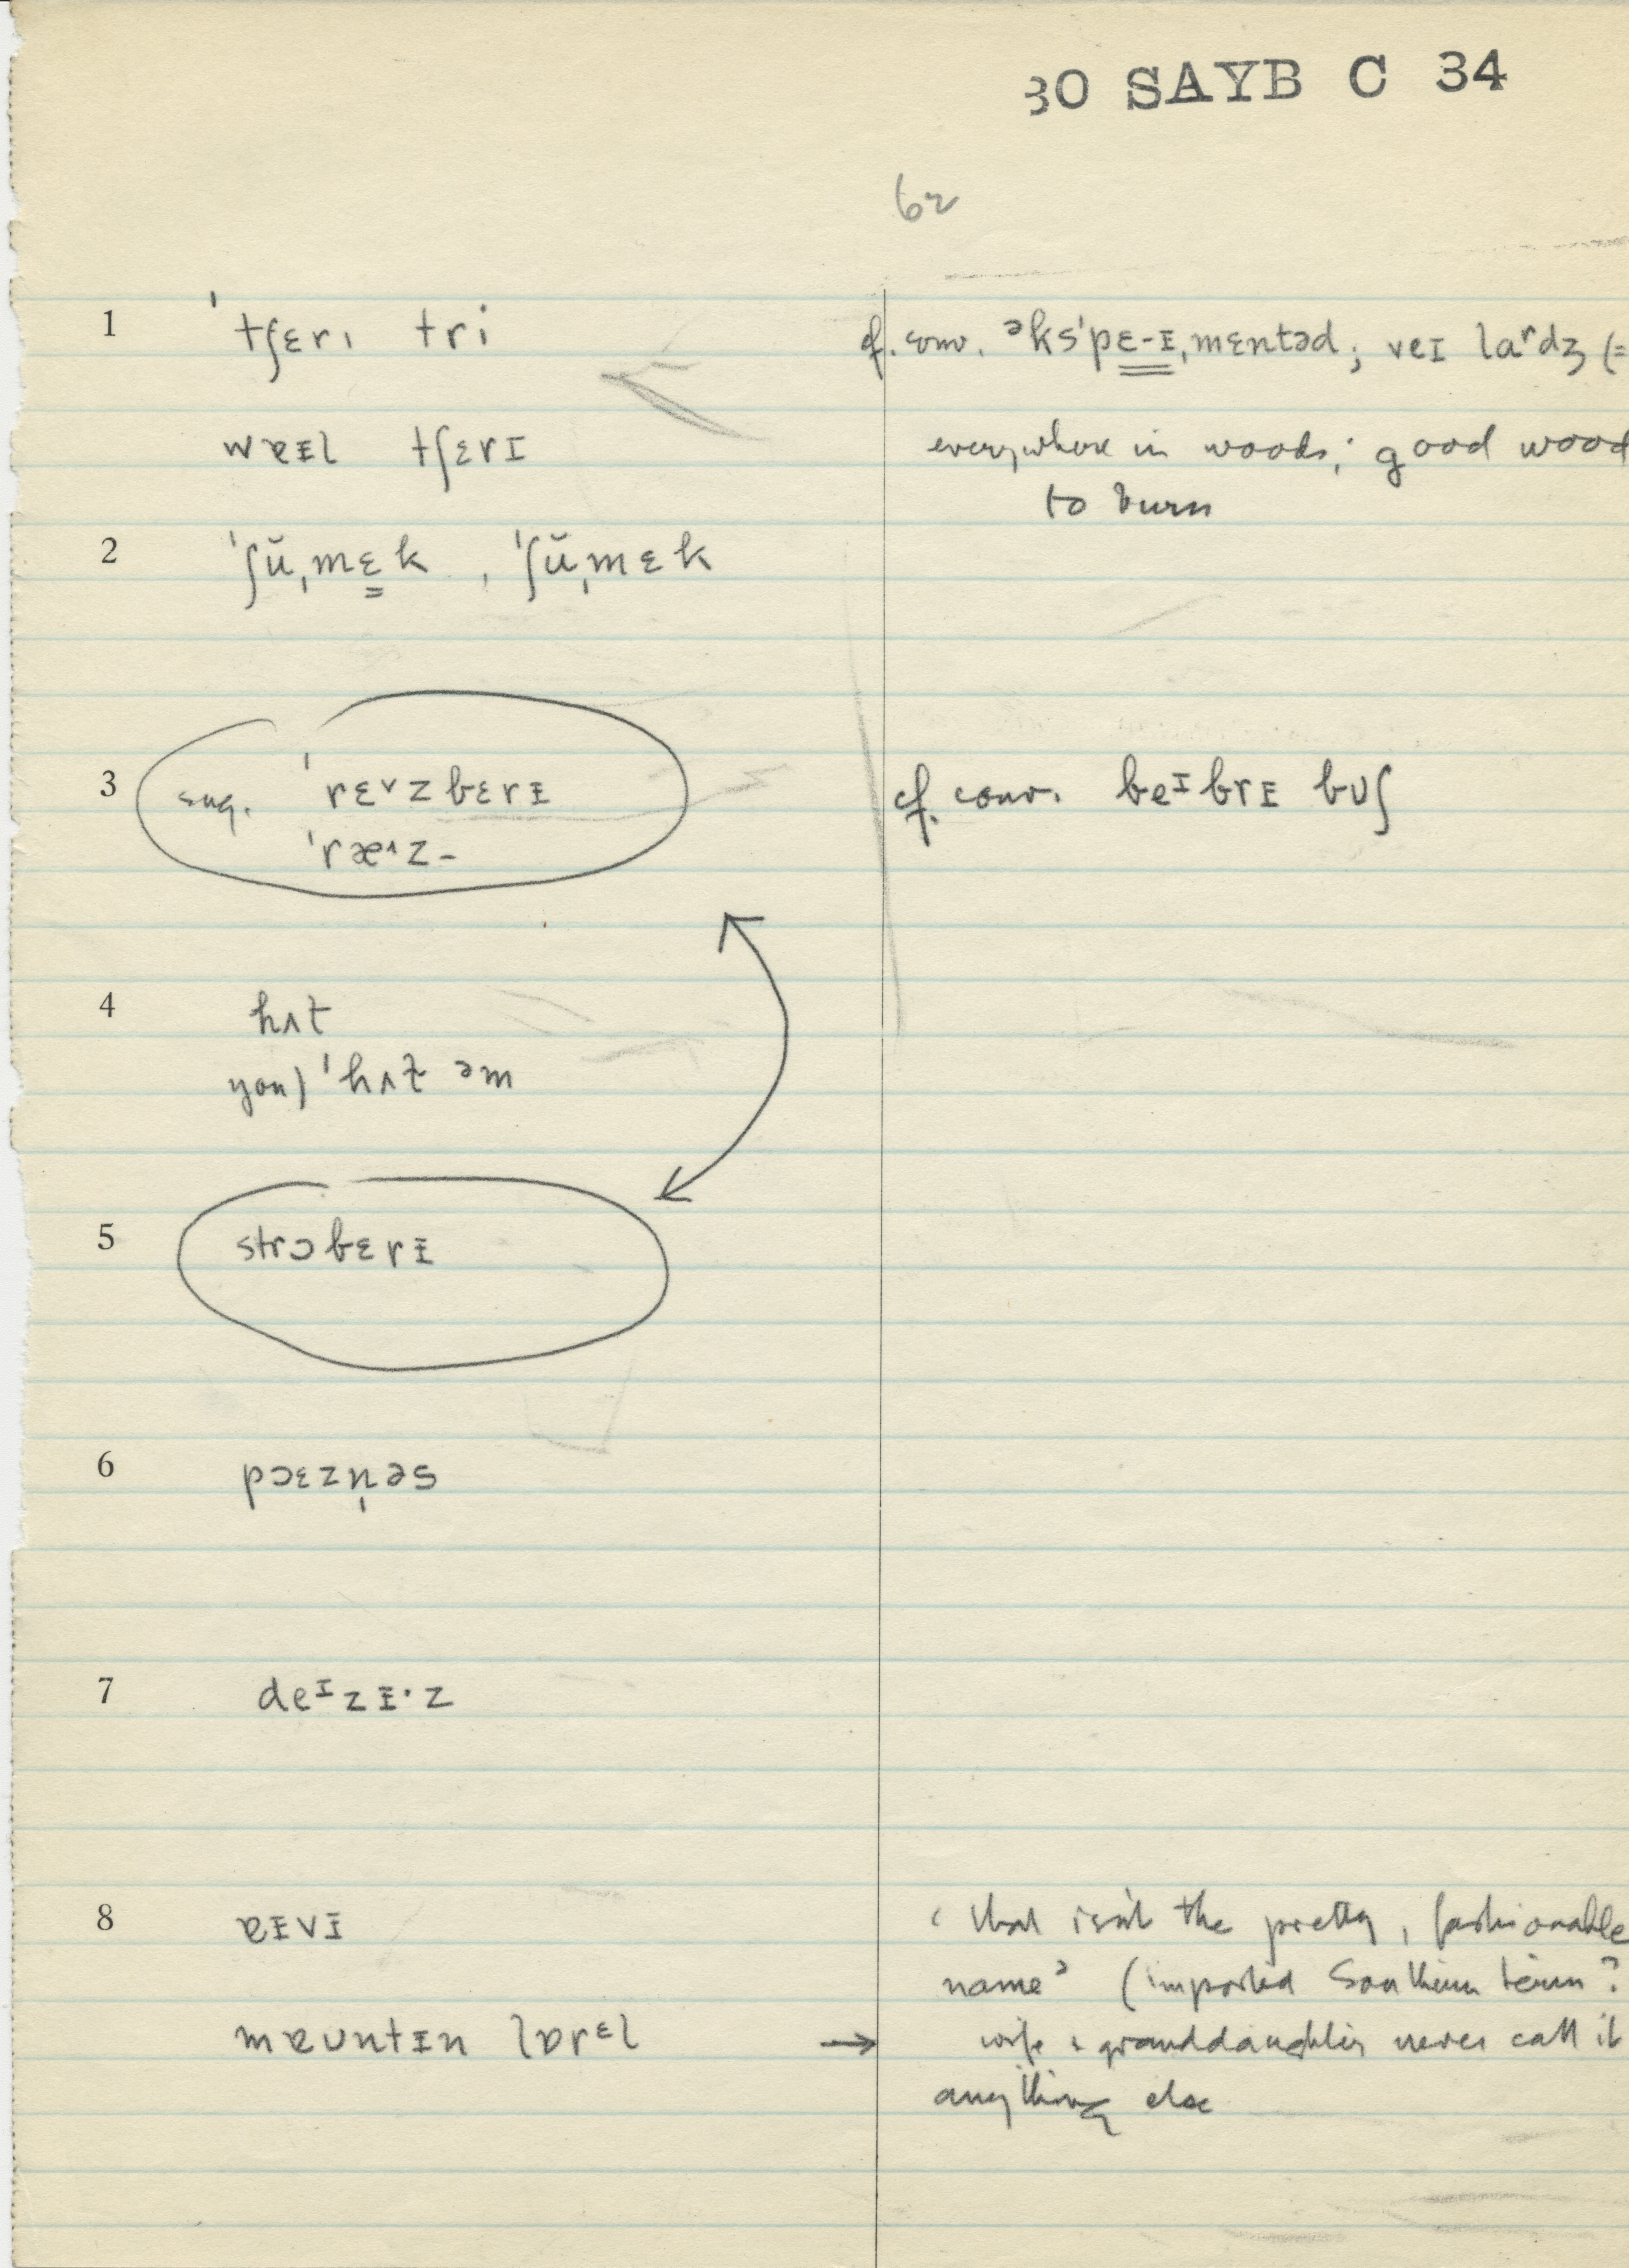 30 SAYB C 34
62
1 ˈtʃɛrɪ tri cf. conv. əksˈpɛ-ɪˌmɛntəd; veɪ laʳdʒ (=
wɐɪl tʃɛrɪ everywhere in woods; good wood
to burn
2 ˈʃŭˌmɛk, ˈʃŭˌmɛk
3 sug. ˈrɛ˅zbɛrɪ cf. conv. beᶦbrɪ bʊʃ
ˈræ˄z-
4 hʌt
you) ˈhʌt̬ əm
5 strɔbɛrɪ
6 pɔɛzn̩əs
7 deᶦzɪ·z
8 ɐɪvɪ ‘that isn't the pretty, fashionable
name’ (imported Southern term?
mɐʊntɪn lɒrᵋl → wife & granddaughter never call it
anything else